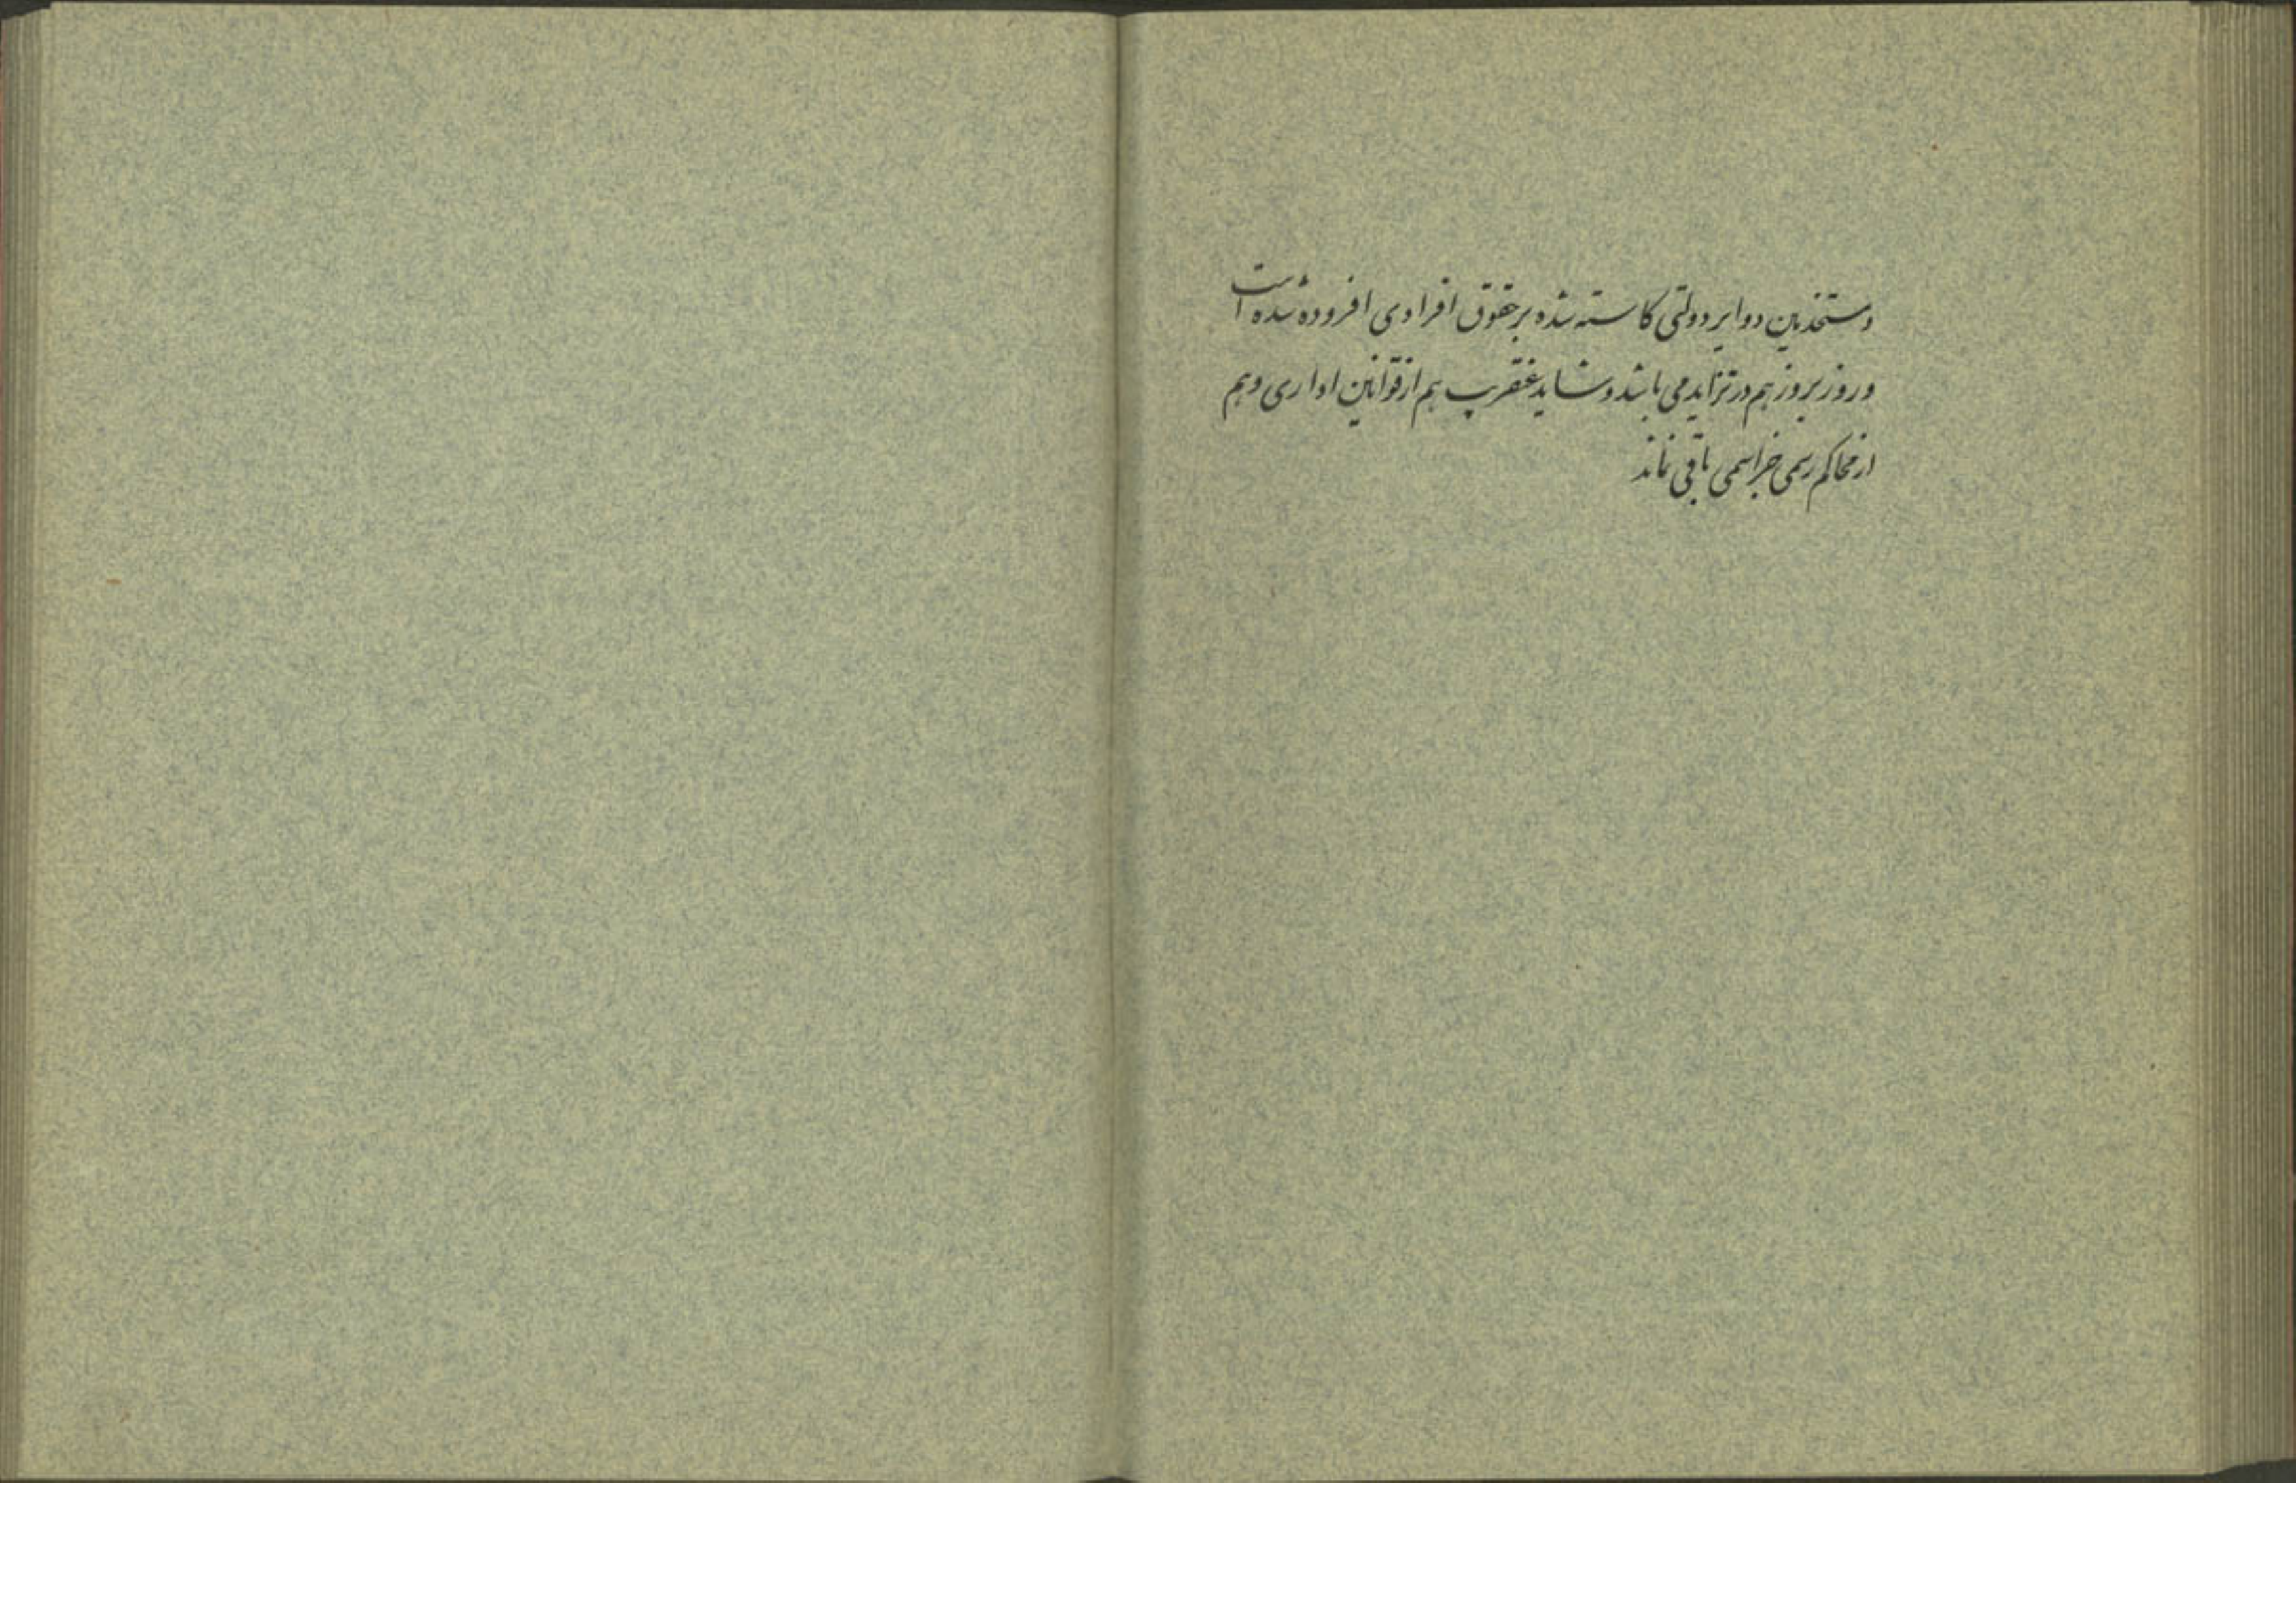 و مستخدمین دوایر دولتی کاسته شده بر حقوق افرادی افزوده شده است
و روز بروز هم در تزاید می باشد و شاید عنقریب هم از قوانین اداری و هم
از محاکم رسمی جز اسمی باقی نماند